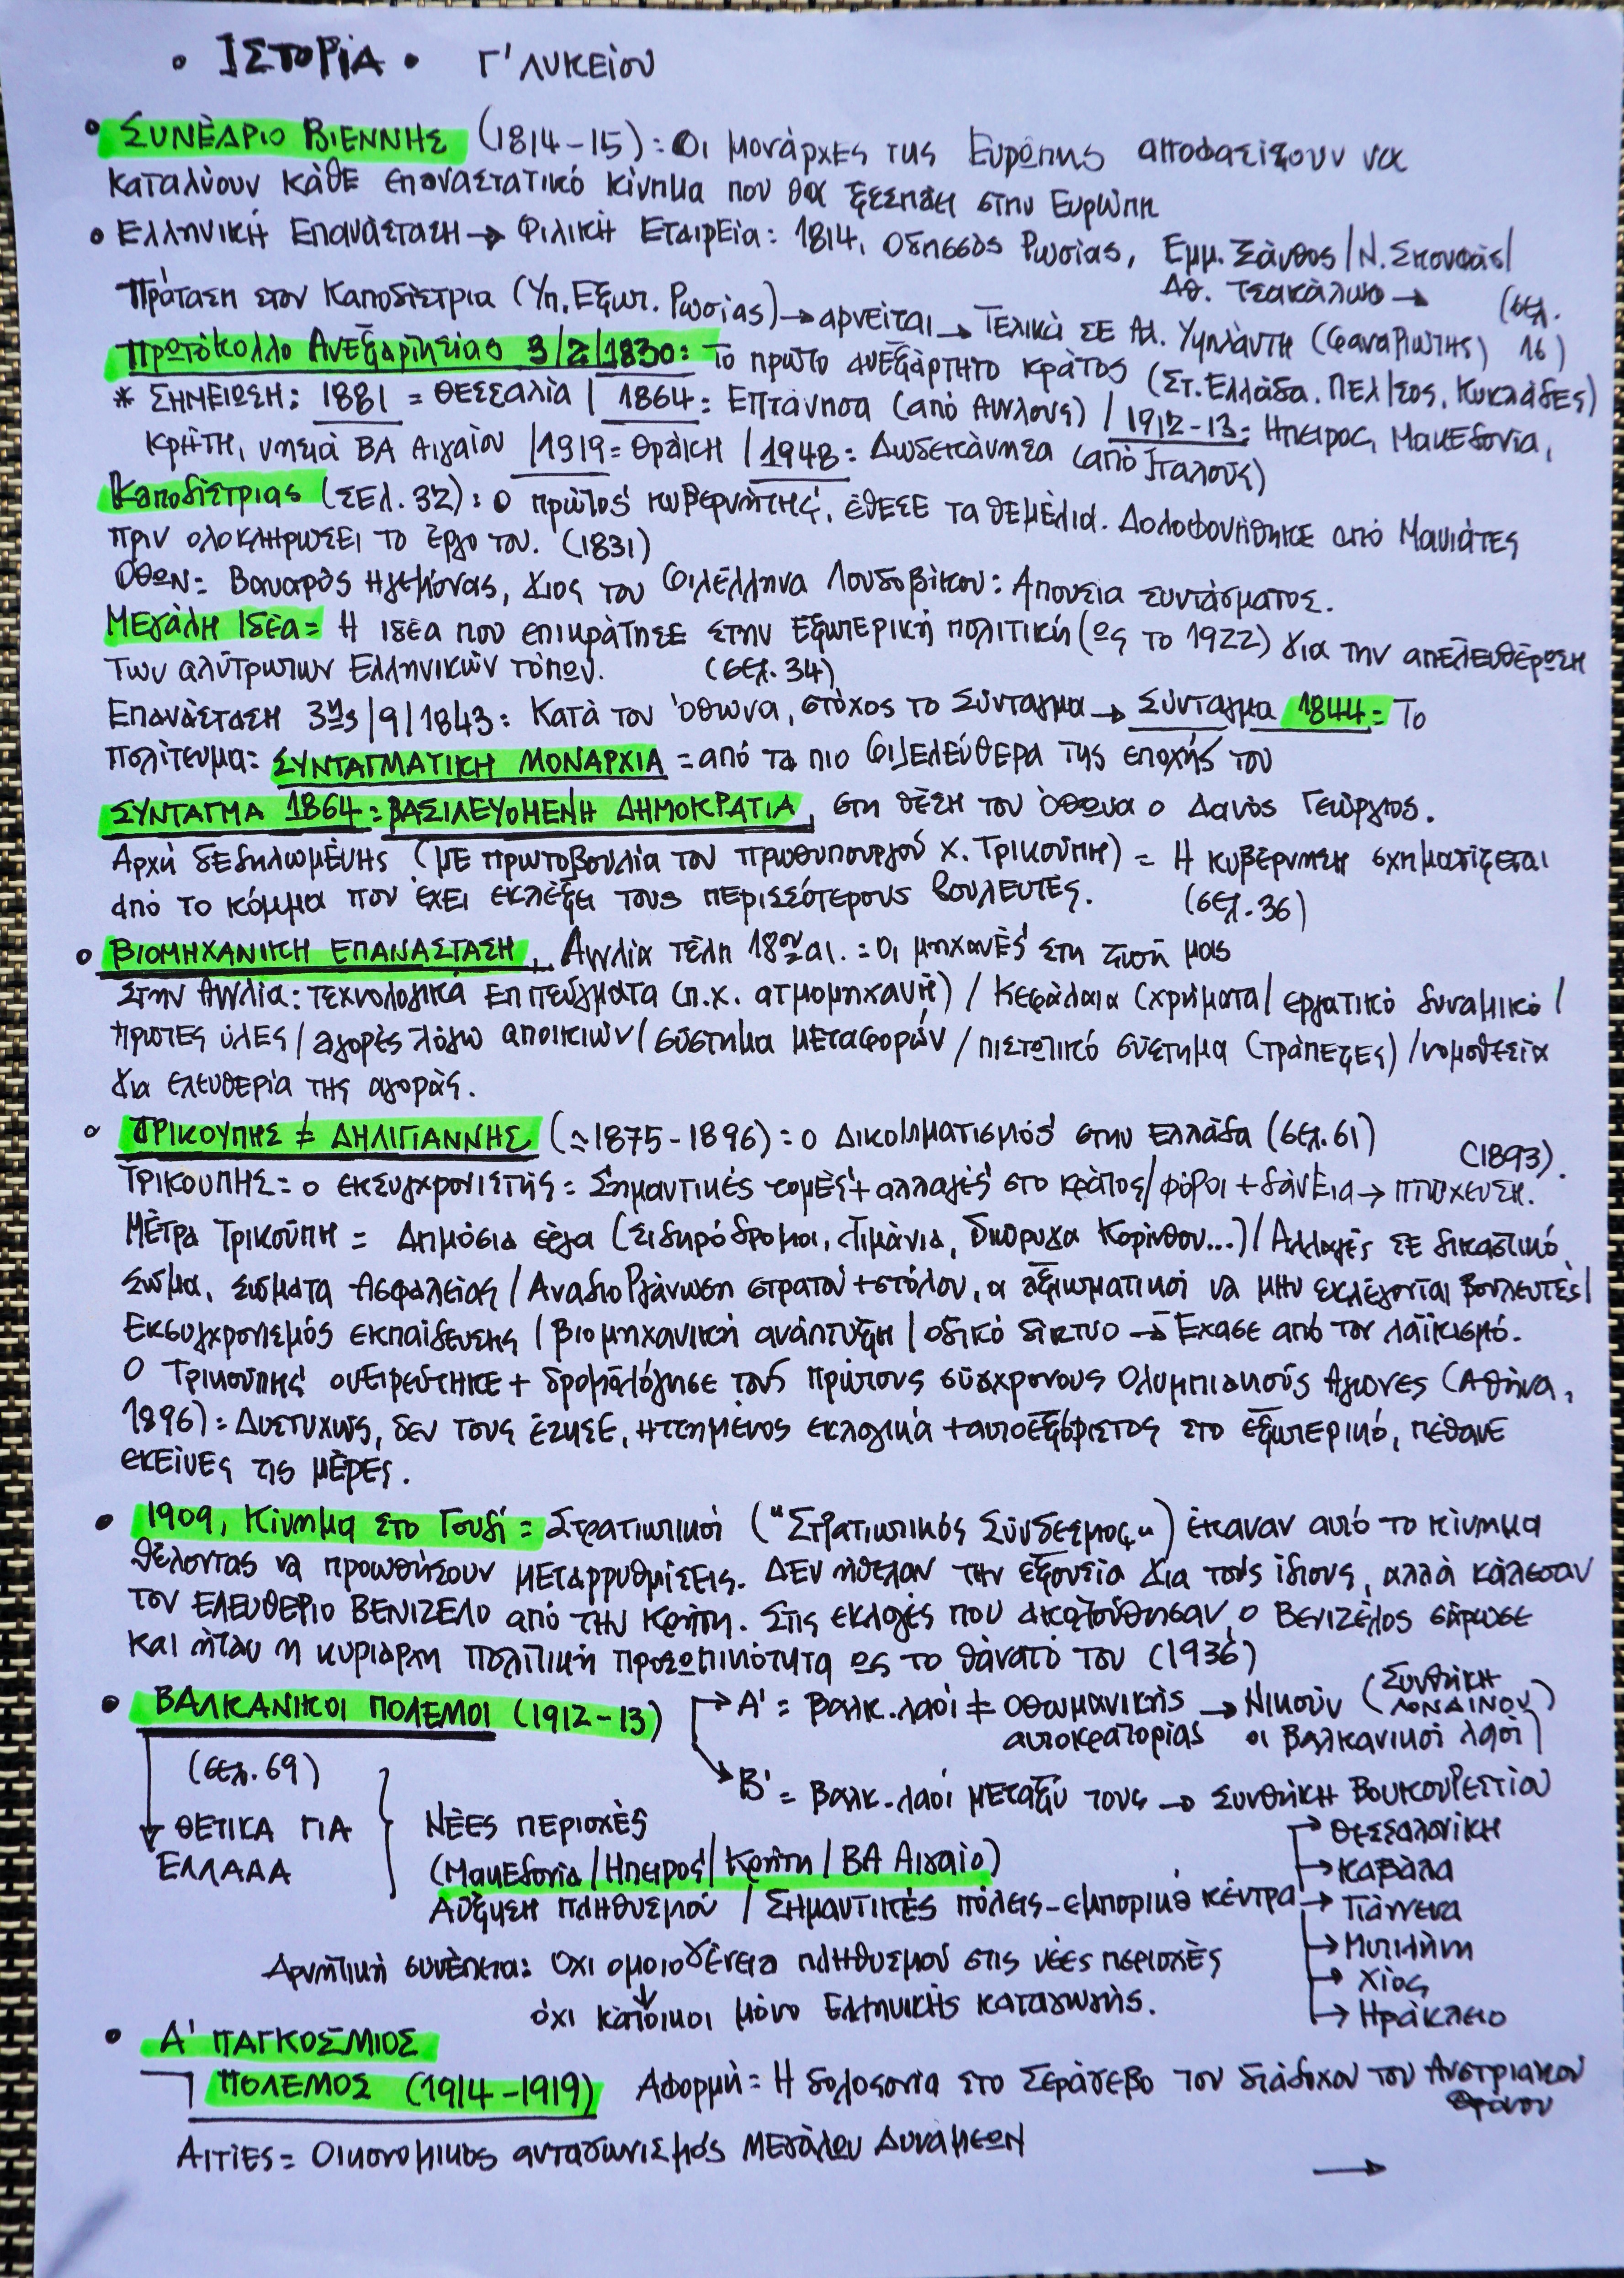 • ΙΣΤΟΡΙΑ • Γ' ΛΥΚΕΙΟΥ
• ΣΥΝΕΔΡΙΟ ΒΙΕΝΝΗΣ (1814-15): Οι μονάρχες της Ευρώπης αποφασίζουν να
καταλύουν κάθε επαναστατικό κίνημα που θα ξεσπάει στην Ευρώπη
• Ελληνική Επανάσταση → Φιλική Εταιρεία: 1814, Οδησσός Ρωσίας, Εμμ. Ξάνθος/Ν. Σκουφάς/
Αθ. Τσακάλωφ →
Πρόταση στον Καποδίστρια (Υπ. Εξωτ. Ρωσίας) → αρνείται → Τελικά σε Αλ. Υψηλάντη (Φαναριώτης) (σελ. 16)
Πρωτόκολλο Ανεξαρτησίας 3/2/1830: Το πρώτο ανεξάρτητο κράτος (Στ. Ελλάδα, Πελ/σος, Κυκλάδες)
* ΣΗΜΕΙΩΣΗ: 1881 = Θεσσαλία / 1864: Επτάνησα (από Αγγλους) / 1912-13: Ηπειρος, Μακεδονία,
Κρήτη, νησιά ΒΑ Αιγαίου / 1919 = Θράκη / 1948: Δωδεκάνησα (από Ιταλούς)
Καποδίστριας (σελ. 32): ο πρώτος κυβερνήτης, έθεσε τα θεμέλια. Δολοφονήθηκε από Μανιάτες
πριν ολοκληρώσει το έργο του. (1831)
Όθων = Βαυαρός ηγεμόνας, γιος του φιλέλληνα Λουδοβίκου: Απουσία συντάσματος.
Μεγάλη Ιδέα = Η ιδέα που επικράτησε στην εξωτερική πολιτική (ως το 1922) για την απελευθέρωση
των αλύτρωτων Ελληνικών τόπων. (σελ. 34)
Επανάσταση 3ης/9/1843: Κατά του Όθωνα, στόχος το Σύνταγμα → Σύνταγμα 1844 = Το
πολίτευμα = ΣΥΝΤΑΓΜΑΤΙΚΗ ΜΟΝΑΡΧΙΑ = από τα πιο φιλελεύθερα της εποχής του
ΣΥΝΤΑΓΜΑ 1864 : ΒΑΣΙΛΕΥΟΜΕΝΗ ΔΗΜΟΚΡΑΤΙΑ, στη θέση του Όθωνα ο Δανός Γεώργιος.
Αρχή δεδηλωμένης (με πρωτοβουλία του πρωθυπουργού Χ. Τρικούπη) = Η κυβέρνηση σχηματίζεται
από το κόμμα που έχει εκλέξει τους περισσότερους βουλευτές. (σελ. 36)
• ΒΙΟΜΗΧΑΝΙΚΗ ΕΠΑΝΑΣΤΑΣΗ, Αγγλία τέλη 18ου αι. = Οι μηχανές στη ζωή μας
Στην Αγγλία: τεχνολογικά επιτεύγματα (π.χ. ατμομηχανή) / κεφάλαια (χρήματα/ εργατικό δυναμικό/
πρώτες ύλες / αγορές λόγω αποικιών / σύστημα μεταφορών / πιστωτικό σύστημα (τράπεζες) / νομοθεσία
για ελευθερία της αγοράς.
• ΤΡΙΚΟΥΠΗΣ ≠ ΔΗΛΙΓΙΑΝΝΗΣ (≈1875-1896) = ο Δικομματισμός στην Ελλάδα (σελ. 61)
ΤΡΙΚΟΥΠΗΣ = ο εκσυγχρονιστής = Σημαντικές τομές + αλλαγές στο κράτος/ φόροι + δάνεια → πτώχευση. (1893).
Μέτρα Τρικούπη = Δημόσια έργα (σιδηρόδρομοι, λιμάνια, διώρυγα Κορίνθου...) / Αλλαγές σε δικαστικό
σώμα, σώματα ασφαλείας / Αναδιοργάνωση στρατού + στόλου, οι αξιωματικοί να μην εκλέγονται βουλευτές/
Εκσυγχρονισμός εκπαίδευσης / βιομηχανική ανάπτυξη / οδικό δίκτυο → Έχασε από τον λαϊκισμό.
Ο Τρικούπης ονειρεύτηκε + δρομολόγησε τους πρώτους σύγχρονους Ολυμπιακούς Αγώνες (Αθήνα,
1896) = Δυστυχώς, δεν τους έζησε, ηττημένος εκλογικά + αυτοεξόριστος στο εξωτερικό, πέθανε
εκείνες τις μέρες.
• 1909, Κίνημα στο Γουδί = Στρατιωτικοί ("Στρατιωτικός Σύνδεσμος") έκαναν αυτό το κίνημα
θέλοντας να προωθήσουν μεταρρυθμίσεις. ΔΕΝ ήθελαν την εξουσία για τους ίδιους, αλλά κάλεσαν
τον ΕΛΕΥΘΕΡΙΟ ΒΕΝΙΖΕΛΟ από την Κρήτη. Στις εκλογές που ακολούθησαν, ο Βενιζέλος σάρωσε
και ήταν η κυρίαρχη πολιτική προσωπικότητα ως το θάνατό του (1936)
• ΒΑΛΚΑΝΙΚΟΙ ΠΟΛΕΜΟΙ (1912-13) → Α' = βαλκ. λαοί ≠ οθωμανικής αυτοκρατορίας → Νικούν οι βαλκανικοί λαοί (Συνθήκη ΛΟΝΔΙΝΟΥ)
→ Β' = βαλκ. λαοί μεταξύ τους → Συνθήκη Βουκουρεστίου
(σελ. 69)
→ ΘΕΤΙΚΑ ΓΙΑ ΕΛΛΑΔΑ
ΝΕΕΣ ΠΕΡΙΟΧΕΣ
(Μακεδονία / Ηπειρος / Κρήτη / ΒΑ Αιγαίο)
Αύξηση πληθυσμού / Σημαντικές πόλεις-εμπορικά κέντρα
→ Θεσσαλονίκη
→ Καβάλα
→ Γιάννενα
→ Μυτιλήνη
→ Χίος
→ Ηράκλειο
Αρνητική συνέπεια: Όχι ομοιογένεια πληθυσμού στις νέες περιοχές
↓
όχι κάτοικοι μόνο Ελληνικής καταγωγής.
• Α' ΠΑΓΚΟΣΜΙΟΣ
ΠΟΛΕΜΟΣ (1914-1919) Αφορμή = Η δολοφονία στο Σεράγεβο του διάδοχου του Αυστριακού
θρόνου
Αιτίες = Οικονομικος ανταγωνισμός Μεγάλων Δυνάμεων
→